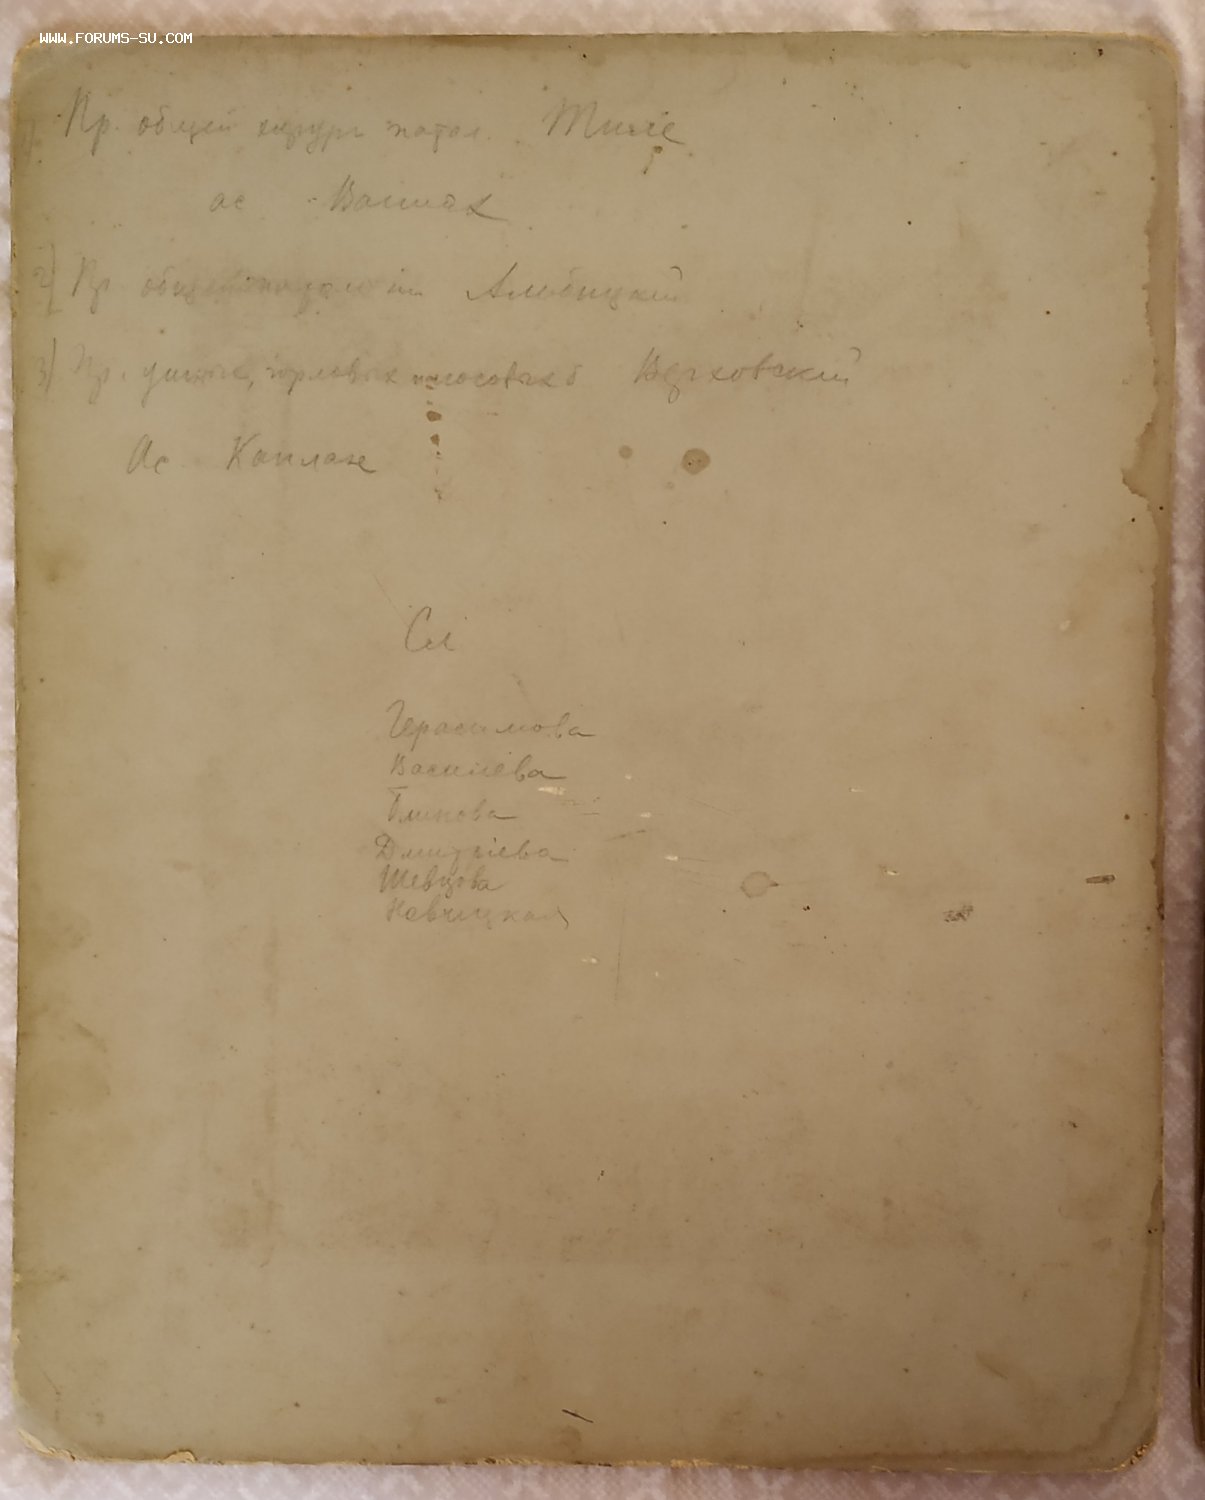 www.forums-su.com
1) Пр. общей хирург патол. Тиле
ас
2) Пр. общей патологіи Альбицкій
3) Пр. ушных, горловых и носовых б Верховский
Ас Каплан
Сл
Герасимова
Василева
Блинова
Дмитріева
Шевцова